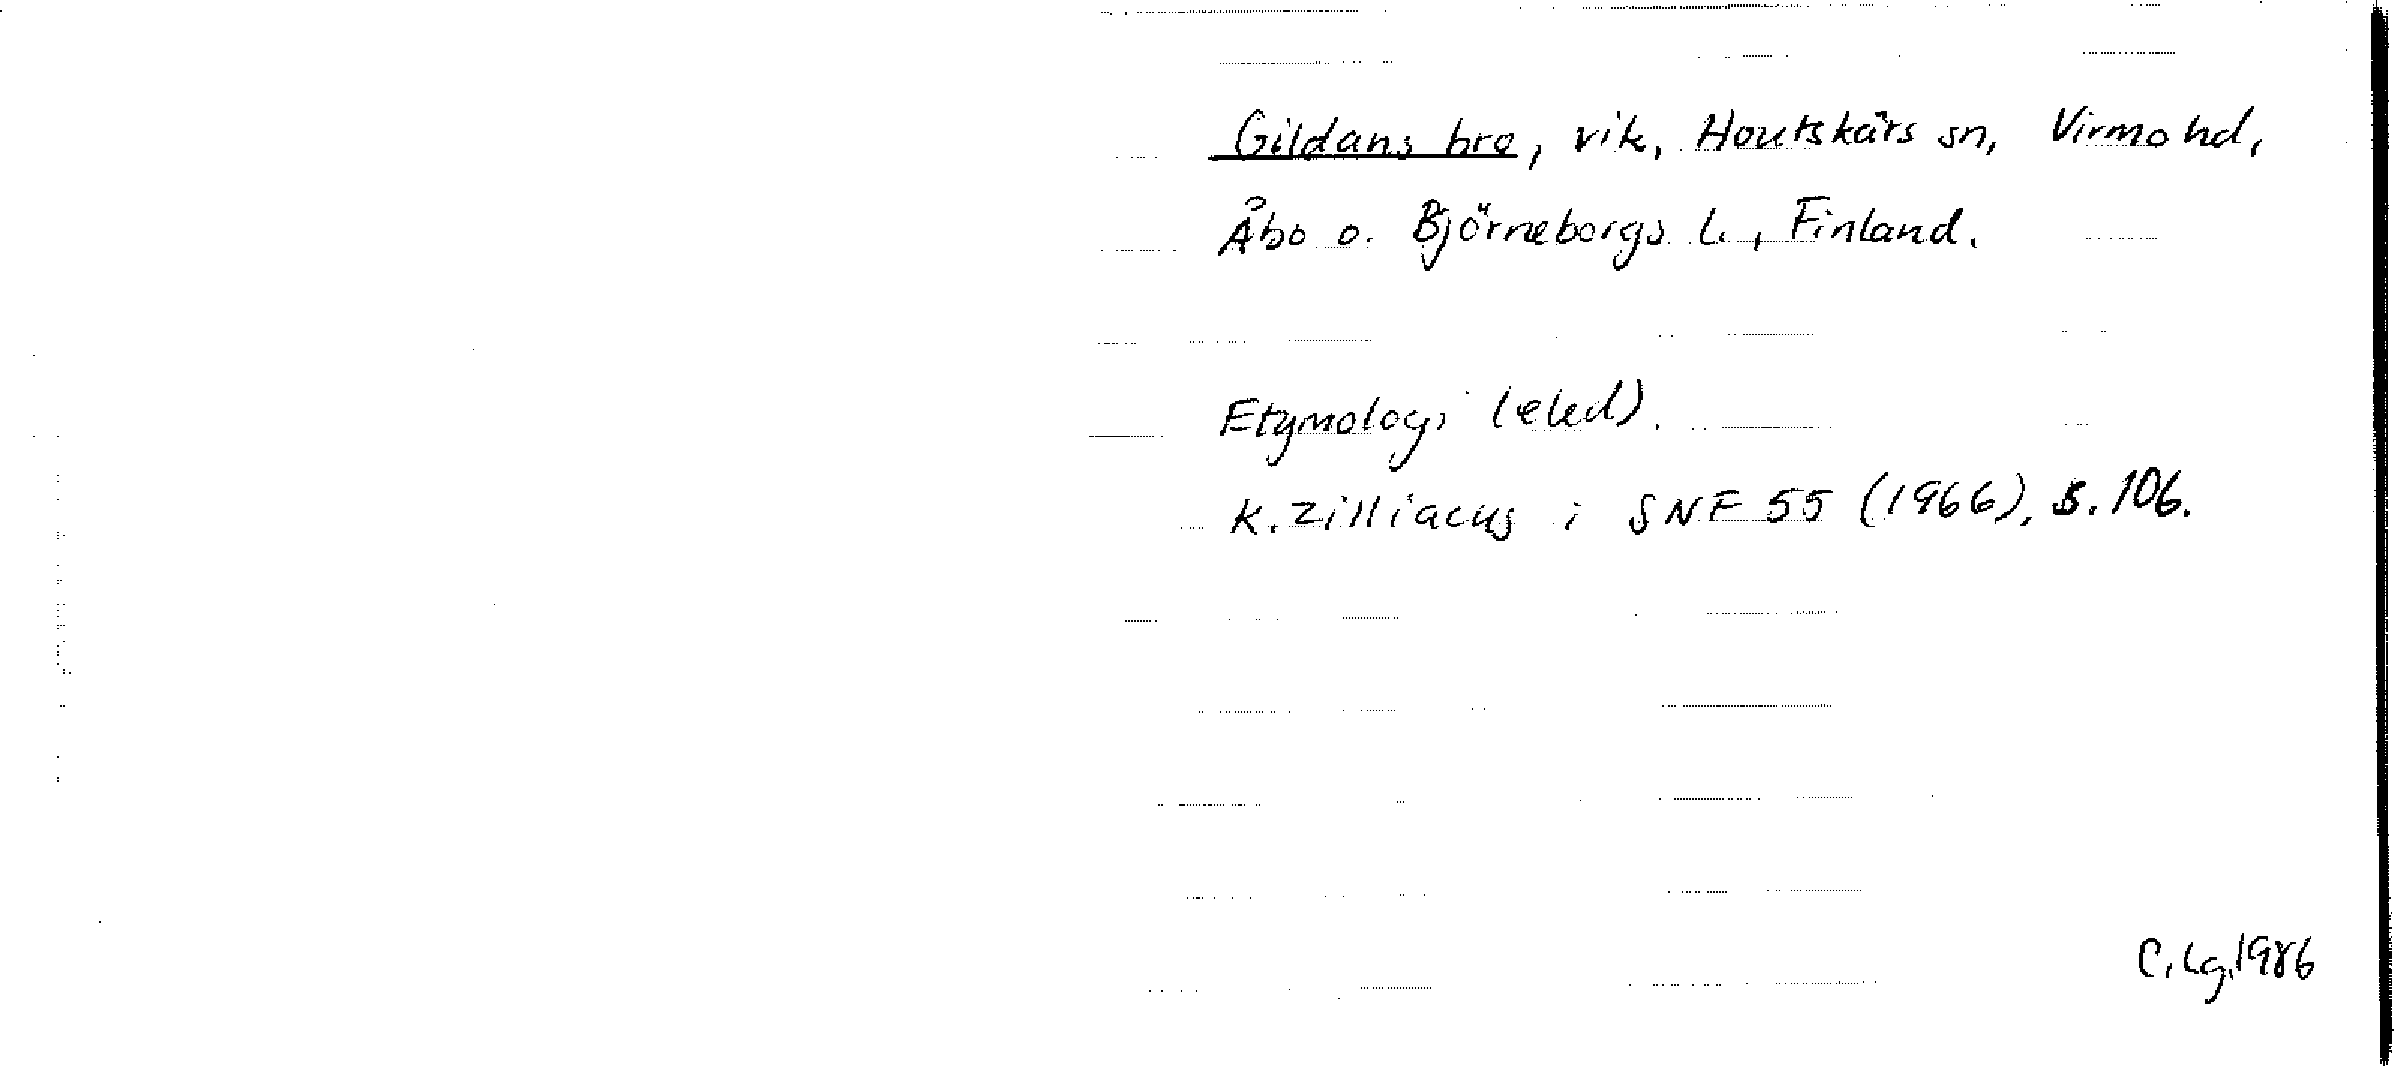 Gildans bre, vik, Houtskärs sn, Virmo hd,
Åbo o. Björneborgs L., Finland.
Etymologi (eld).
K. Zilliacus i SNF 55 (1966), s. 106.
C. Lg. 1986